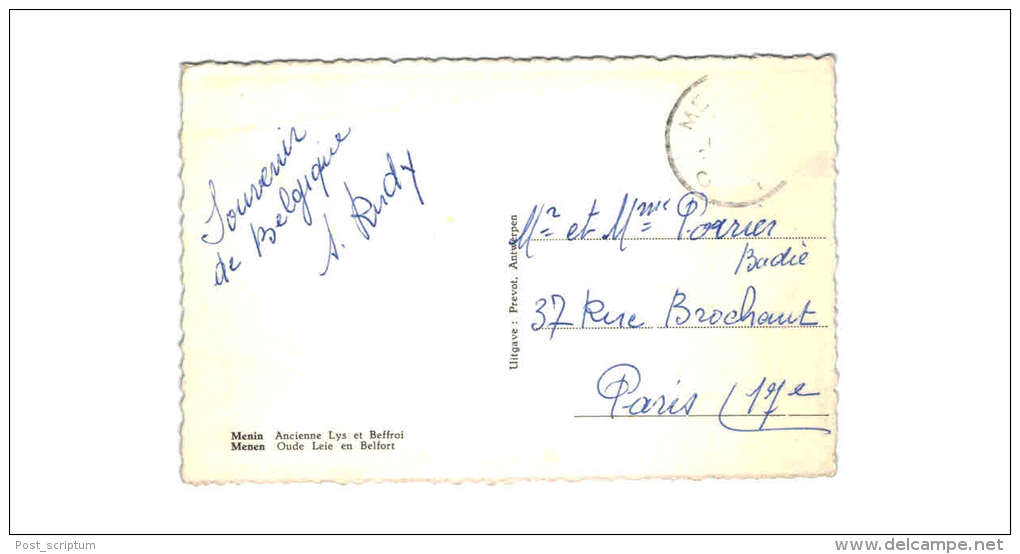 Souvenir
de Belgique
Menin Ancienne Lys et Beffroi
Menen Oude Leie en Belfort
Uitgave : Prevot, Antwerpen
ME
Mr et Mme
Badie
37 Rue Brochant
Paris (17e
Post_scriptum
delcampe.net